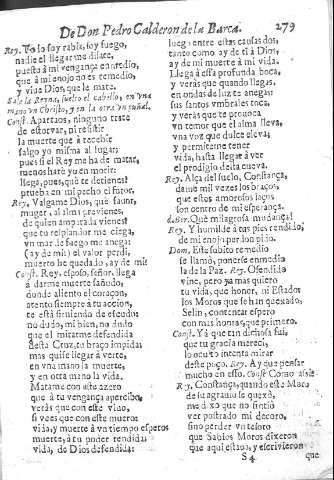 De Don Pedro Calderon de la Barca. 279
Rey. Yo lo soy rabia, soy fuego,
nadie el llegar me dilate,
puesto à mi vengança remedio,
que à mi enojo no es remedio,
y vive Dios, que le mate.
Sale la Reyna, suelto el cabello, en vna
mano vn Christo, y en la otra vn puñal.
Const. Apartaos, ninguno trate
de estorvar, ni resistir
la muerte que à recebir
salgo yo misma al lugar;
pues si el Rey me ha de matar,
menos harè yo en morir:
llega, pues, què te detienes?
prueba en mi pecho el furor.
Rey. Valgame Dios, què
muger, al alma previenes,
de quien ampirada vienes?
que tu resplandor me ciega,
vn mar de fuego me anega:
(ay de mi) el valor perdi,
muerto he quedado, ay de mi!
Const. Rey, esposo, señor, llega
à darme muerte sañudo,
donde aliento el coraçon,
atento siempre à tu accion,
te està sirviendo de escudo:
no dudo, mi bien, no dudo
que el mirarme defendida
desta Cruz, tu braço impida;
mas quise llegar à verte,
en vna mano la muerte,
y en otra mano la vida.
Matame con este azero
que à tu vengança apercibo,
veràs que con este vivo,
si veces que con este muero:
vida, y muerte à vn tiempo espero
muerte, à tu poder rendida;
vida, de Dios defendida:
luego entre estas causas dos,
tanto como ay de ti à Dios,
ay de mi muerte à mi vida.
Llega à esta profunda boca,
y veràs que quando llegas,
en ondas de luz te anegas:
sus santos vmbrales toca,
y veràs que te provoca
vn temor que el alma lleva,
vna voz que dulce eleva;
y permiteme tener
vida, hasta llegar à ver
el prodigio desta cueva.
Rey. Alça del suelo, Constança,
dame mil vezes los braços,
que estos amorosos laços
son centro de mi esperança.
Què milagrosa mudança!
Rey. Y humilde à tus pies rendido,
de mi enojo perdon pido.
Dom. Este subito remedio
se llamò, ponerse enmedio
la de la Paz. Rey. Ofendido
vine, pero ya mas quiero
tu vida, que honor, mi Estado
los Moros que se han quexado,
Selin, contentar espero
con mas honras, que primero.
Const. Y à que tan dichosa fui,
que tu gracia mereci,
lo oculto intenta mirar
deste poço. Rey. Ay que pensar
mucho en esso. Const. Como assi?
Rey. Constança, quando este Maca
de su agravio se quexò,
me dixo que no sintiò
ver postrado mi decoro,
sino perder vn tesoro
que Sabios Moros dixeron
que aqui estava, y escrivieron
S 4 que